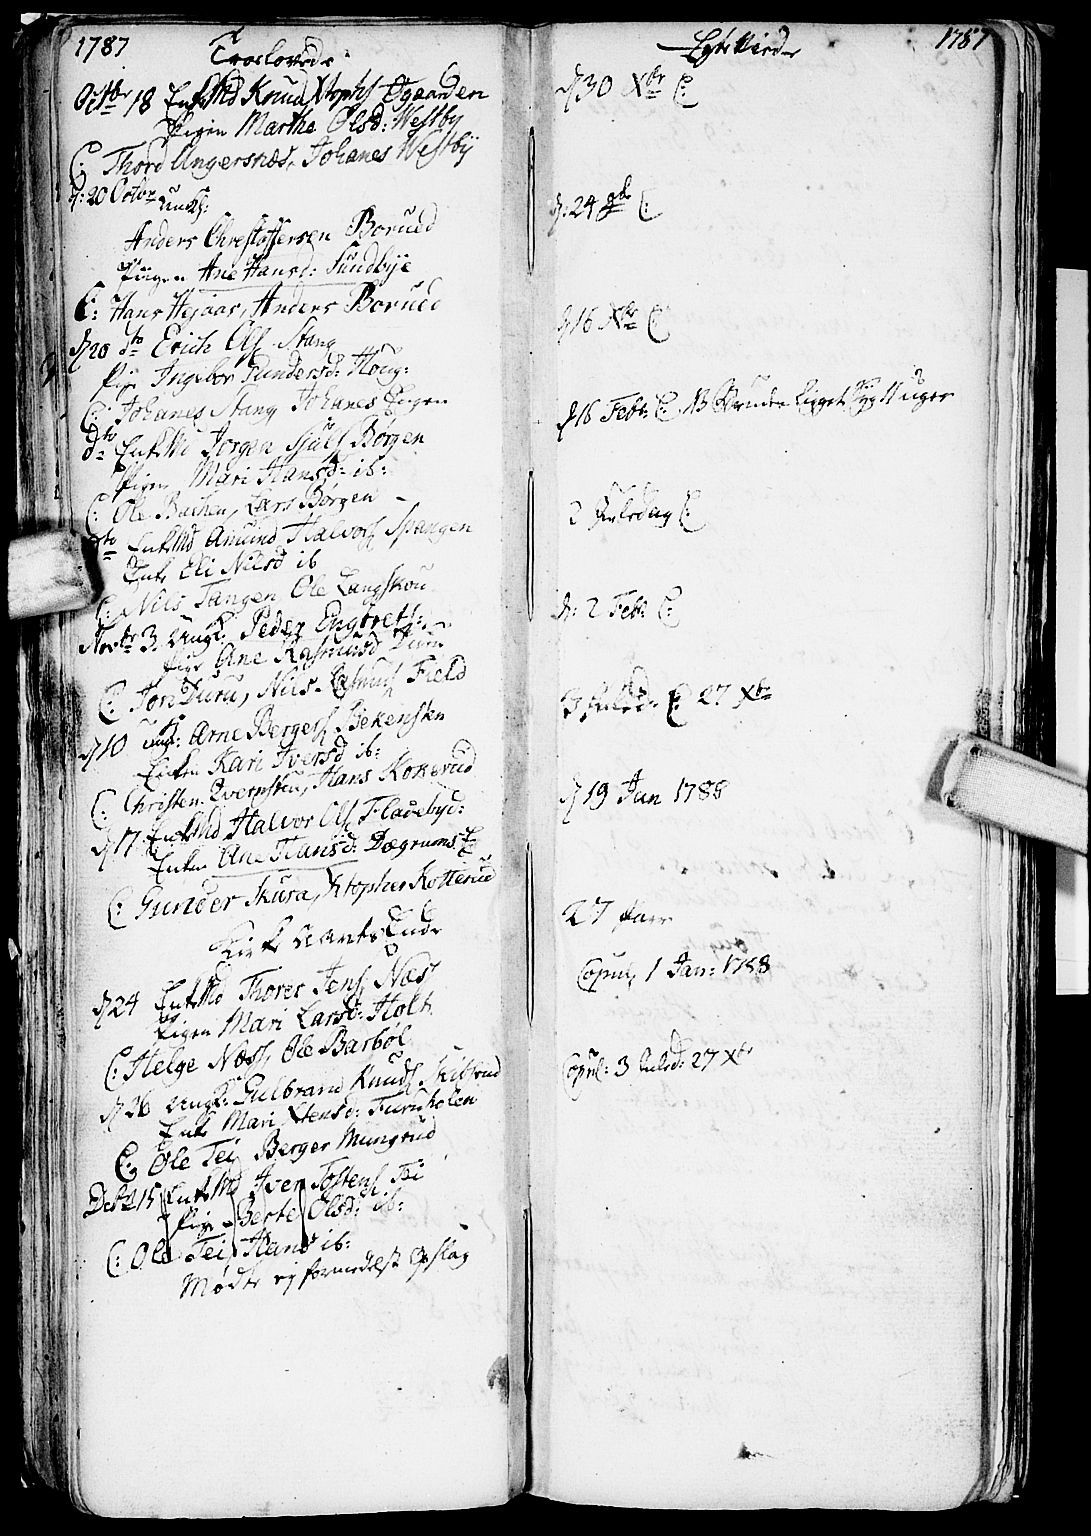 1787
Troelovede
Octbr 18 Enk.Md Knud Xtophs Øgaarden
Pigen Marthe Olsd: Westby
C: Thord Ungersnæs, Johanes Westby
d: 20 Octbr Ungk:
Anders Christoffersen Borued
Pigen Ane Hansd: Sundbye
C: Hans Hejaas, Anders Borued
d 20 dto Erich Ols Stang
Pig. Ingebor Gundersd: Houg:
C: Johanes Stang Johanes
dto Enk.Md Jorgen Siuls Børgen
Pigen Mari Hansd: ib:
C: Ole Bachen, Lars Børgen
dto Enk.Md Amund Halvors Spangen
Enk. Eli Nilsd ib
C: Nils Tangen Ole Langskou
Novbr 3 Ungk: Peder Engbrets:
Pige Ane Rasmusd Duru
C: Jon Duru, Nils Field
d 10 ungk: Arne Bergers Bekensten
Enken Kari Iversd ib:
C: Christen Qvernsten, Hans Kokerud
d 17 Enk.Md Halvor Ols Fladebyd:
Enken Ane Hansd: Dægrums
C: Gunder Skura, Xtopher Kotterud
d 24 Enk.Md Thores Jens Næs
Pigen Mari Larsd: Holt
C: Helge Næs, Ole Barbøl
d 26 Ungk: Gulbrand Knuds
Enk. Mari Xtensd: Furuholen
C: Ole Tei, Berger Mungrud
Decbr 15 Enk.Md Iver Tostens Tei
Pige Berte Olsd: ib:
C: Ole Tei, Hans ib:
Mødte ej formedelst Opslag
Egteviede
1787
d 30 Xbr C:
d: 24 9br C:
d 16 Xbr C
d 16 Febr: C: NB Bruden ligget syg 11 uger
2 Juledag C:
d: 2 Febr: C:
3 Juled: C: 27 Xbr
d 19 Jan 1788
27 Parr
Copul: 1 Jan: 1788
Copul: 3 Juled: 27 Xbr